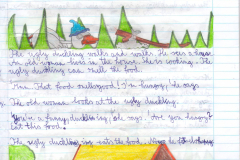 The ugly duckling walks and walks. He sees a house.
An old woman lives in the house. She is cooking. The
ugly duckling can smell the food.
"Mm. That food smells good. I'm hungry," he says.
The old woman looks at the ugly duckling.
"You're a funny duckling," she says. "Are you hungry?
Eat this food."
The ugly duckling eats the food.